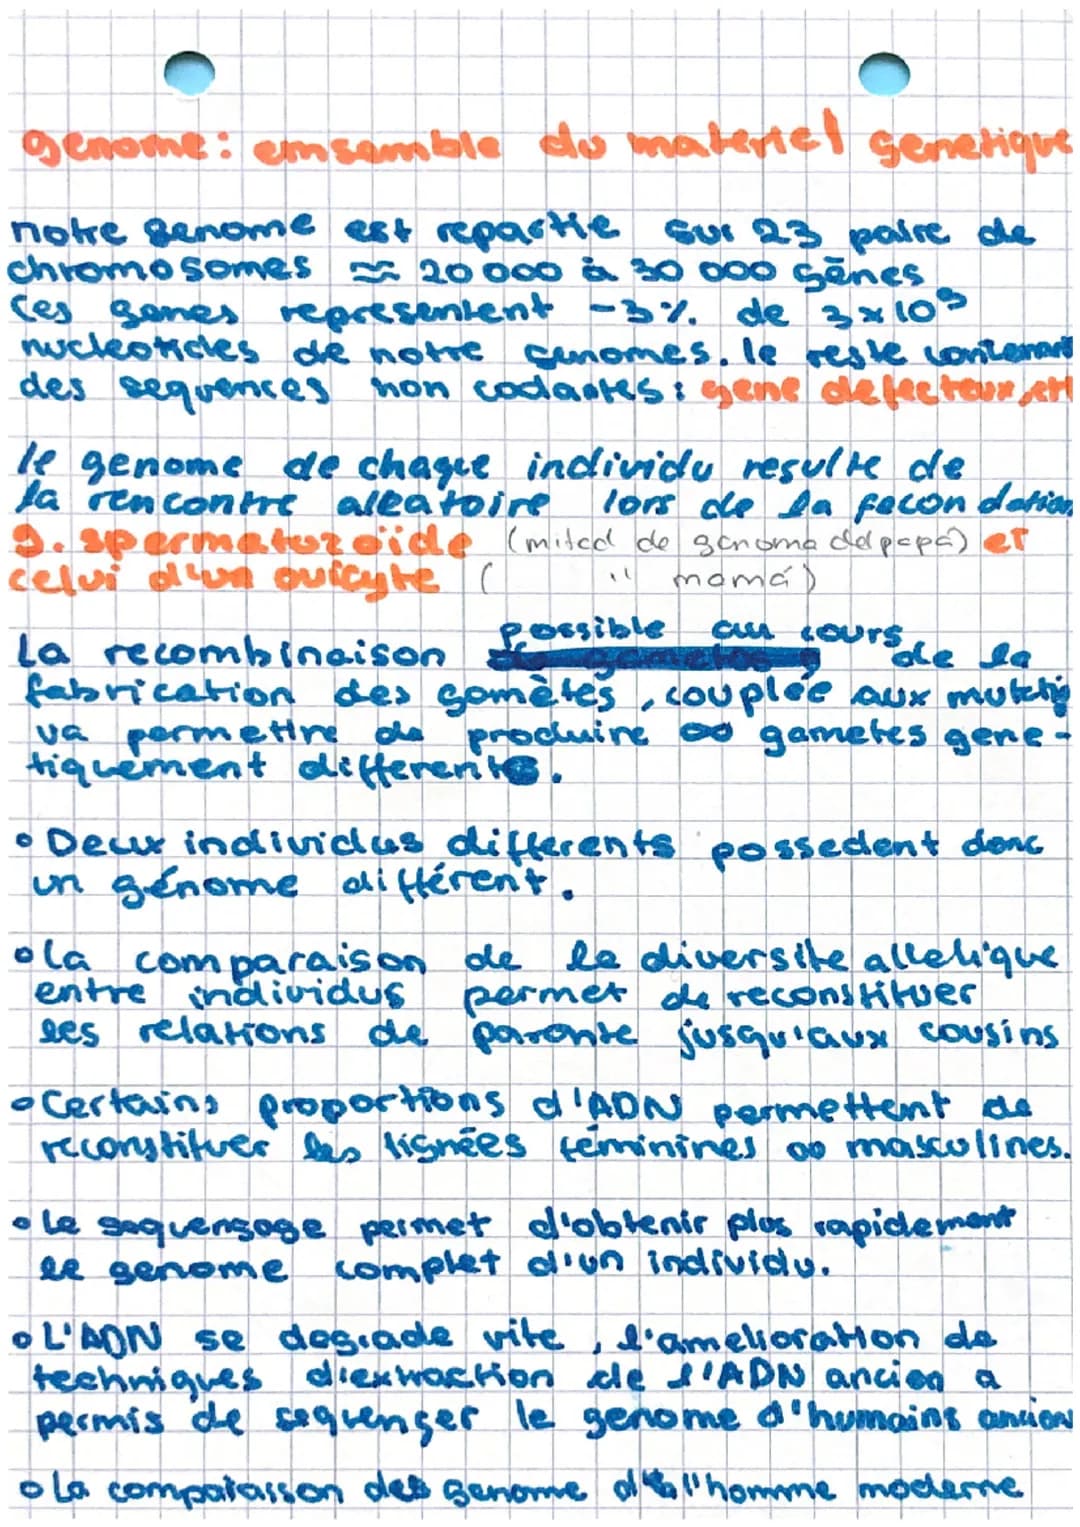 genome: emsemble du materiel genetique
notre genome est repartie sur 23 paire de
chromosomes ≈ 20 000 à 30 000 gènes
Ces genes representent -3% de 3x10⁹
nucleotides de notre genomes. le reste contenant
des sequences non codantes: gene defecteux, et
le genome de chaque individu resulte de
la rencontre aleatoire lors de la fecondation
g. spermatozoïde (mitad de genoma del papá) et
celui d'un ovicyte ( " mamá)
La recombinaison possible au cours de la
fabrication des gamètes, couplée aux mutatio
va permettre de produire ∞ gametes gene-
tiquement differents.
• Deux individus differents possedent donc
un génome différent.
• la comparaison de la diversite allelique
entre individus permet de reconstituer
les relations de parente jusqu'aux cousins
• Certains proportions d'ADN permettent de
reconstituer les lignées féminines oo masculines.
• Le sequençage permet d'obtenir plus rapidement
le genome complet d'un individu.
• L'ADN se degrade vite, l'amelioration de
techniques d'extraction de l'ADN ancien a
permis de sequençer le genome d'humains ancien
• La comparaisson des genome de l'homme moderne